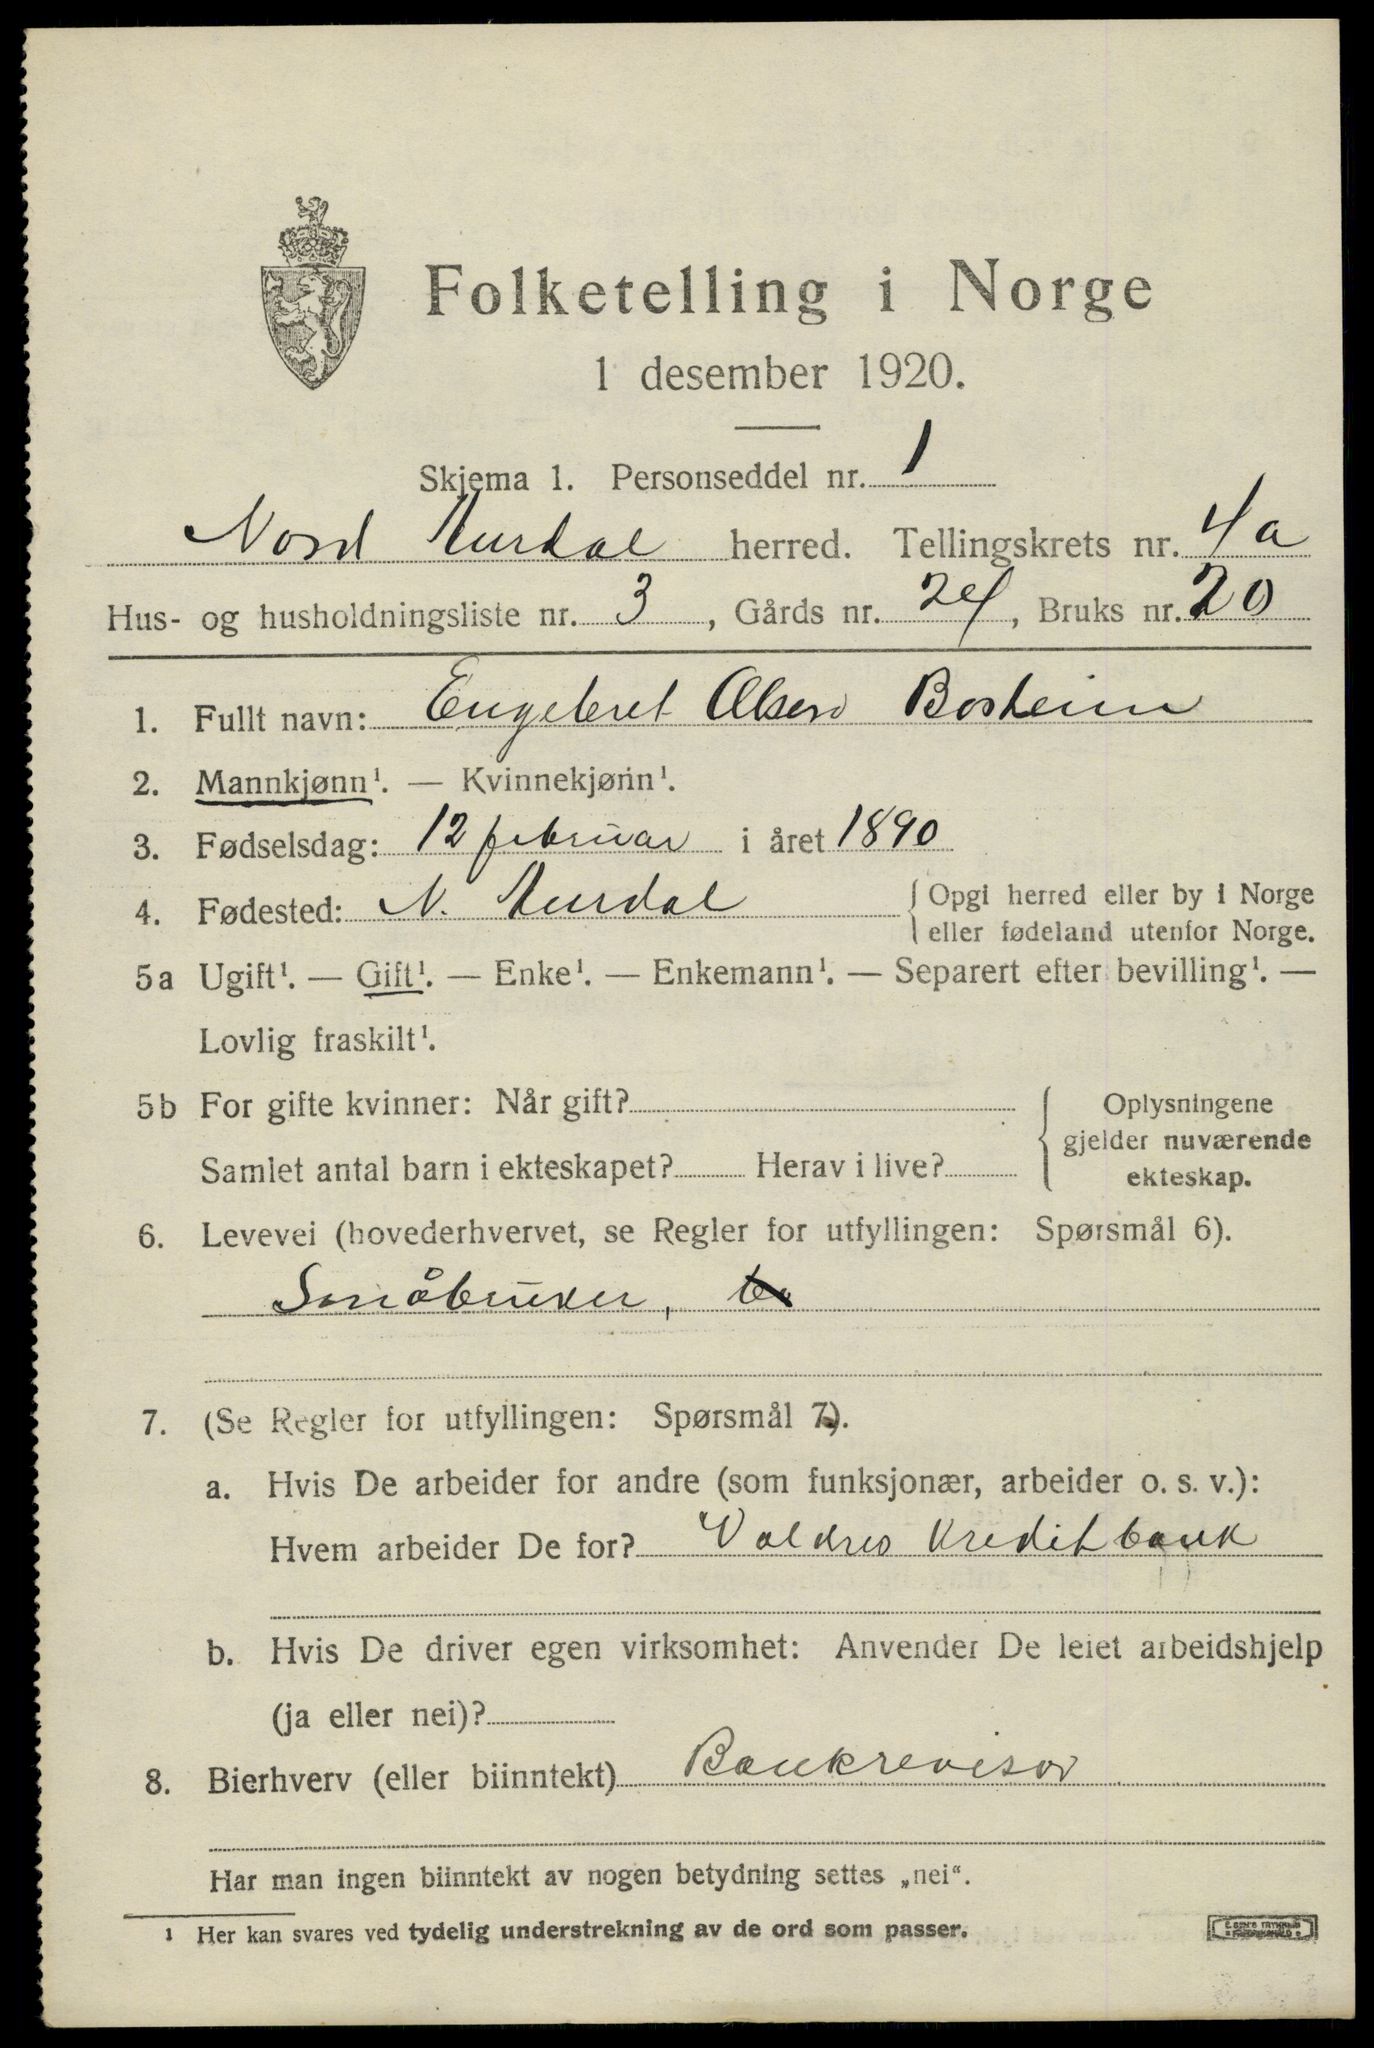 Folketelling i Norge
1 desember 1920.
Skjema 1. Personseddel nr. 1
Nord Aurdal herred. Tellingskrets nr. 4a
Hus- og husholdningsliste nr. 3, Gårds nr. 24, Bruks nr. 20
1. Fullt navn: Engebret Olsen Bosheim
2. Mannkjønn¹. — Kvinnekjønn¹.
3. Fødselsdag: 12 februar i året 1890
4. Fødested: N. Aurdal { Opgi herred eller by i Norge
eller fødeland utenfor Norge.
5a Ugift¹. — Gift¹. — Enke¹. — Enkemann¹. — Separert efter bevilling¹. —
Lovlig fraskilt¹.
5b For gifte kvinner: Når gift?
Samlet antal barn i ekteskapet? Herav i live?
Oplysningene
gjelder nuværende
ekteskap.
6. Levevei (hovederhvervet, se Regler for utfyllingen: Spørsmål 6).
Småbruker,
7. (Se Regler for utfyllingen: Spørsmål 7).
a. Hvis De arbeider for andre (som funksjonær, arbeider o. s. v.):
Hvem arbeider De for? Valdres Kreditbank
b. Hvis De driver egen virksomhet: Anvender De leiet arbeidshjelp
(ja eller nei)?
8. Bierhverv (eller biinntekt) Bankrevisor
Har man ingen biinntekt av nogen betydning settes „nei“.
¹ Her kan svares ved tydelig understrekning av de ord som passer.